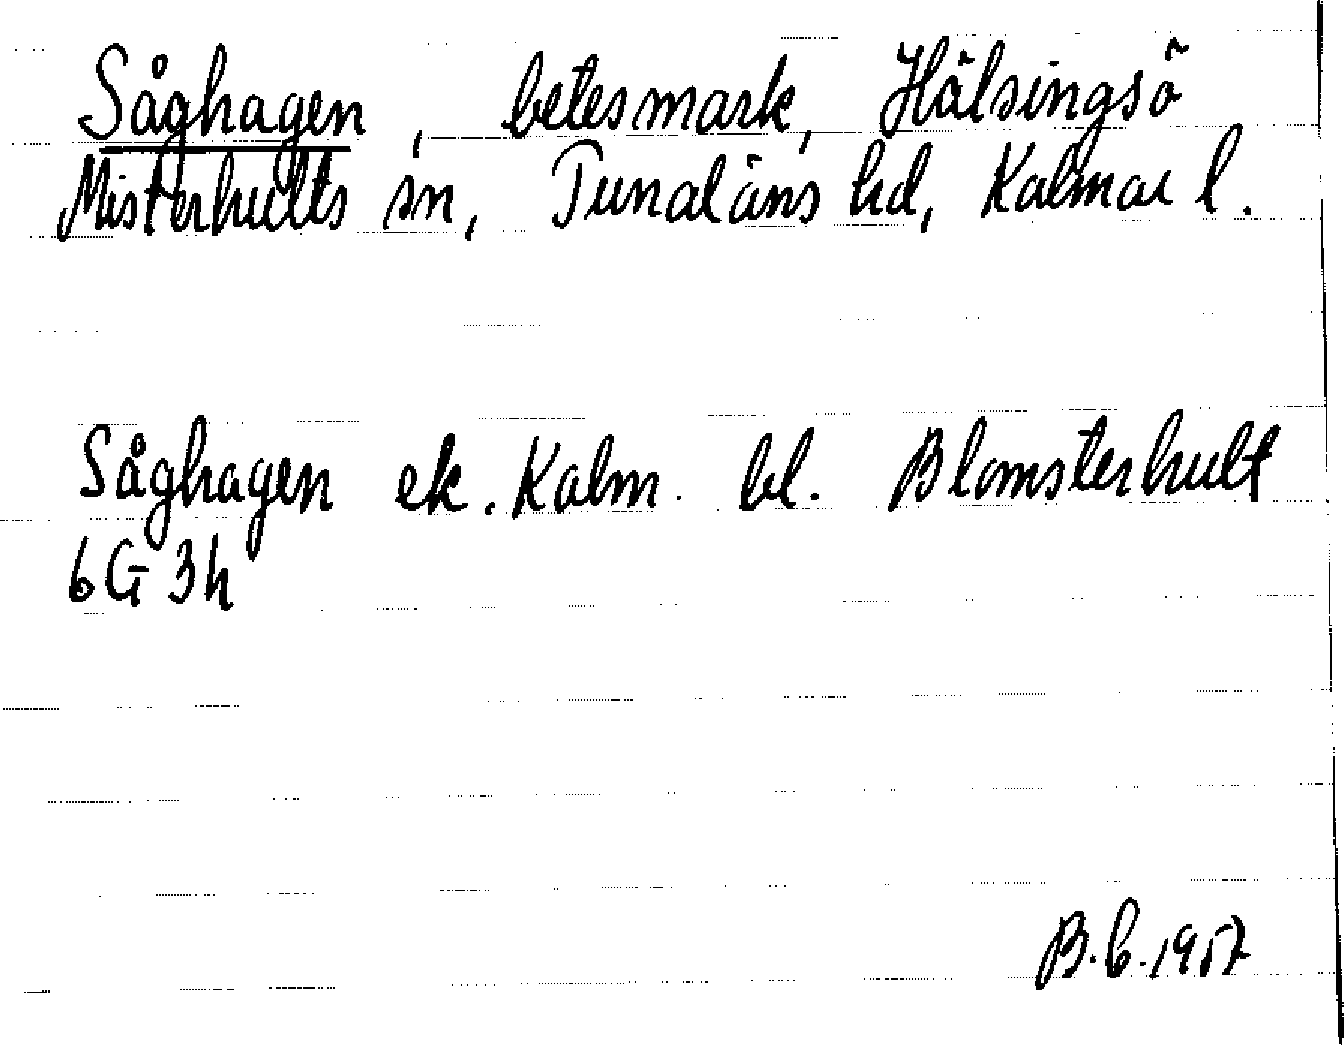 Såghagen, betesmark, Hälsingsö
Misterhults sn, Tunaläns hd, Kalmar l.
Såghagen ek. Kalm. bl. Blomsterhult
6G 3h
B.G. 1957